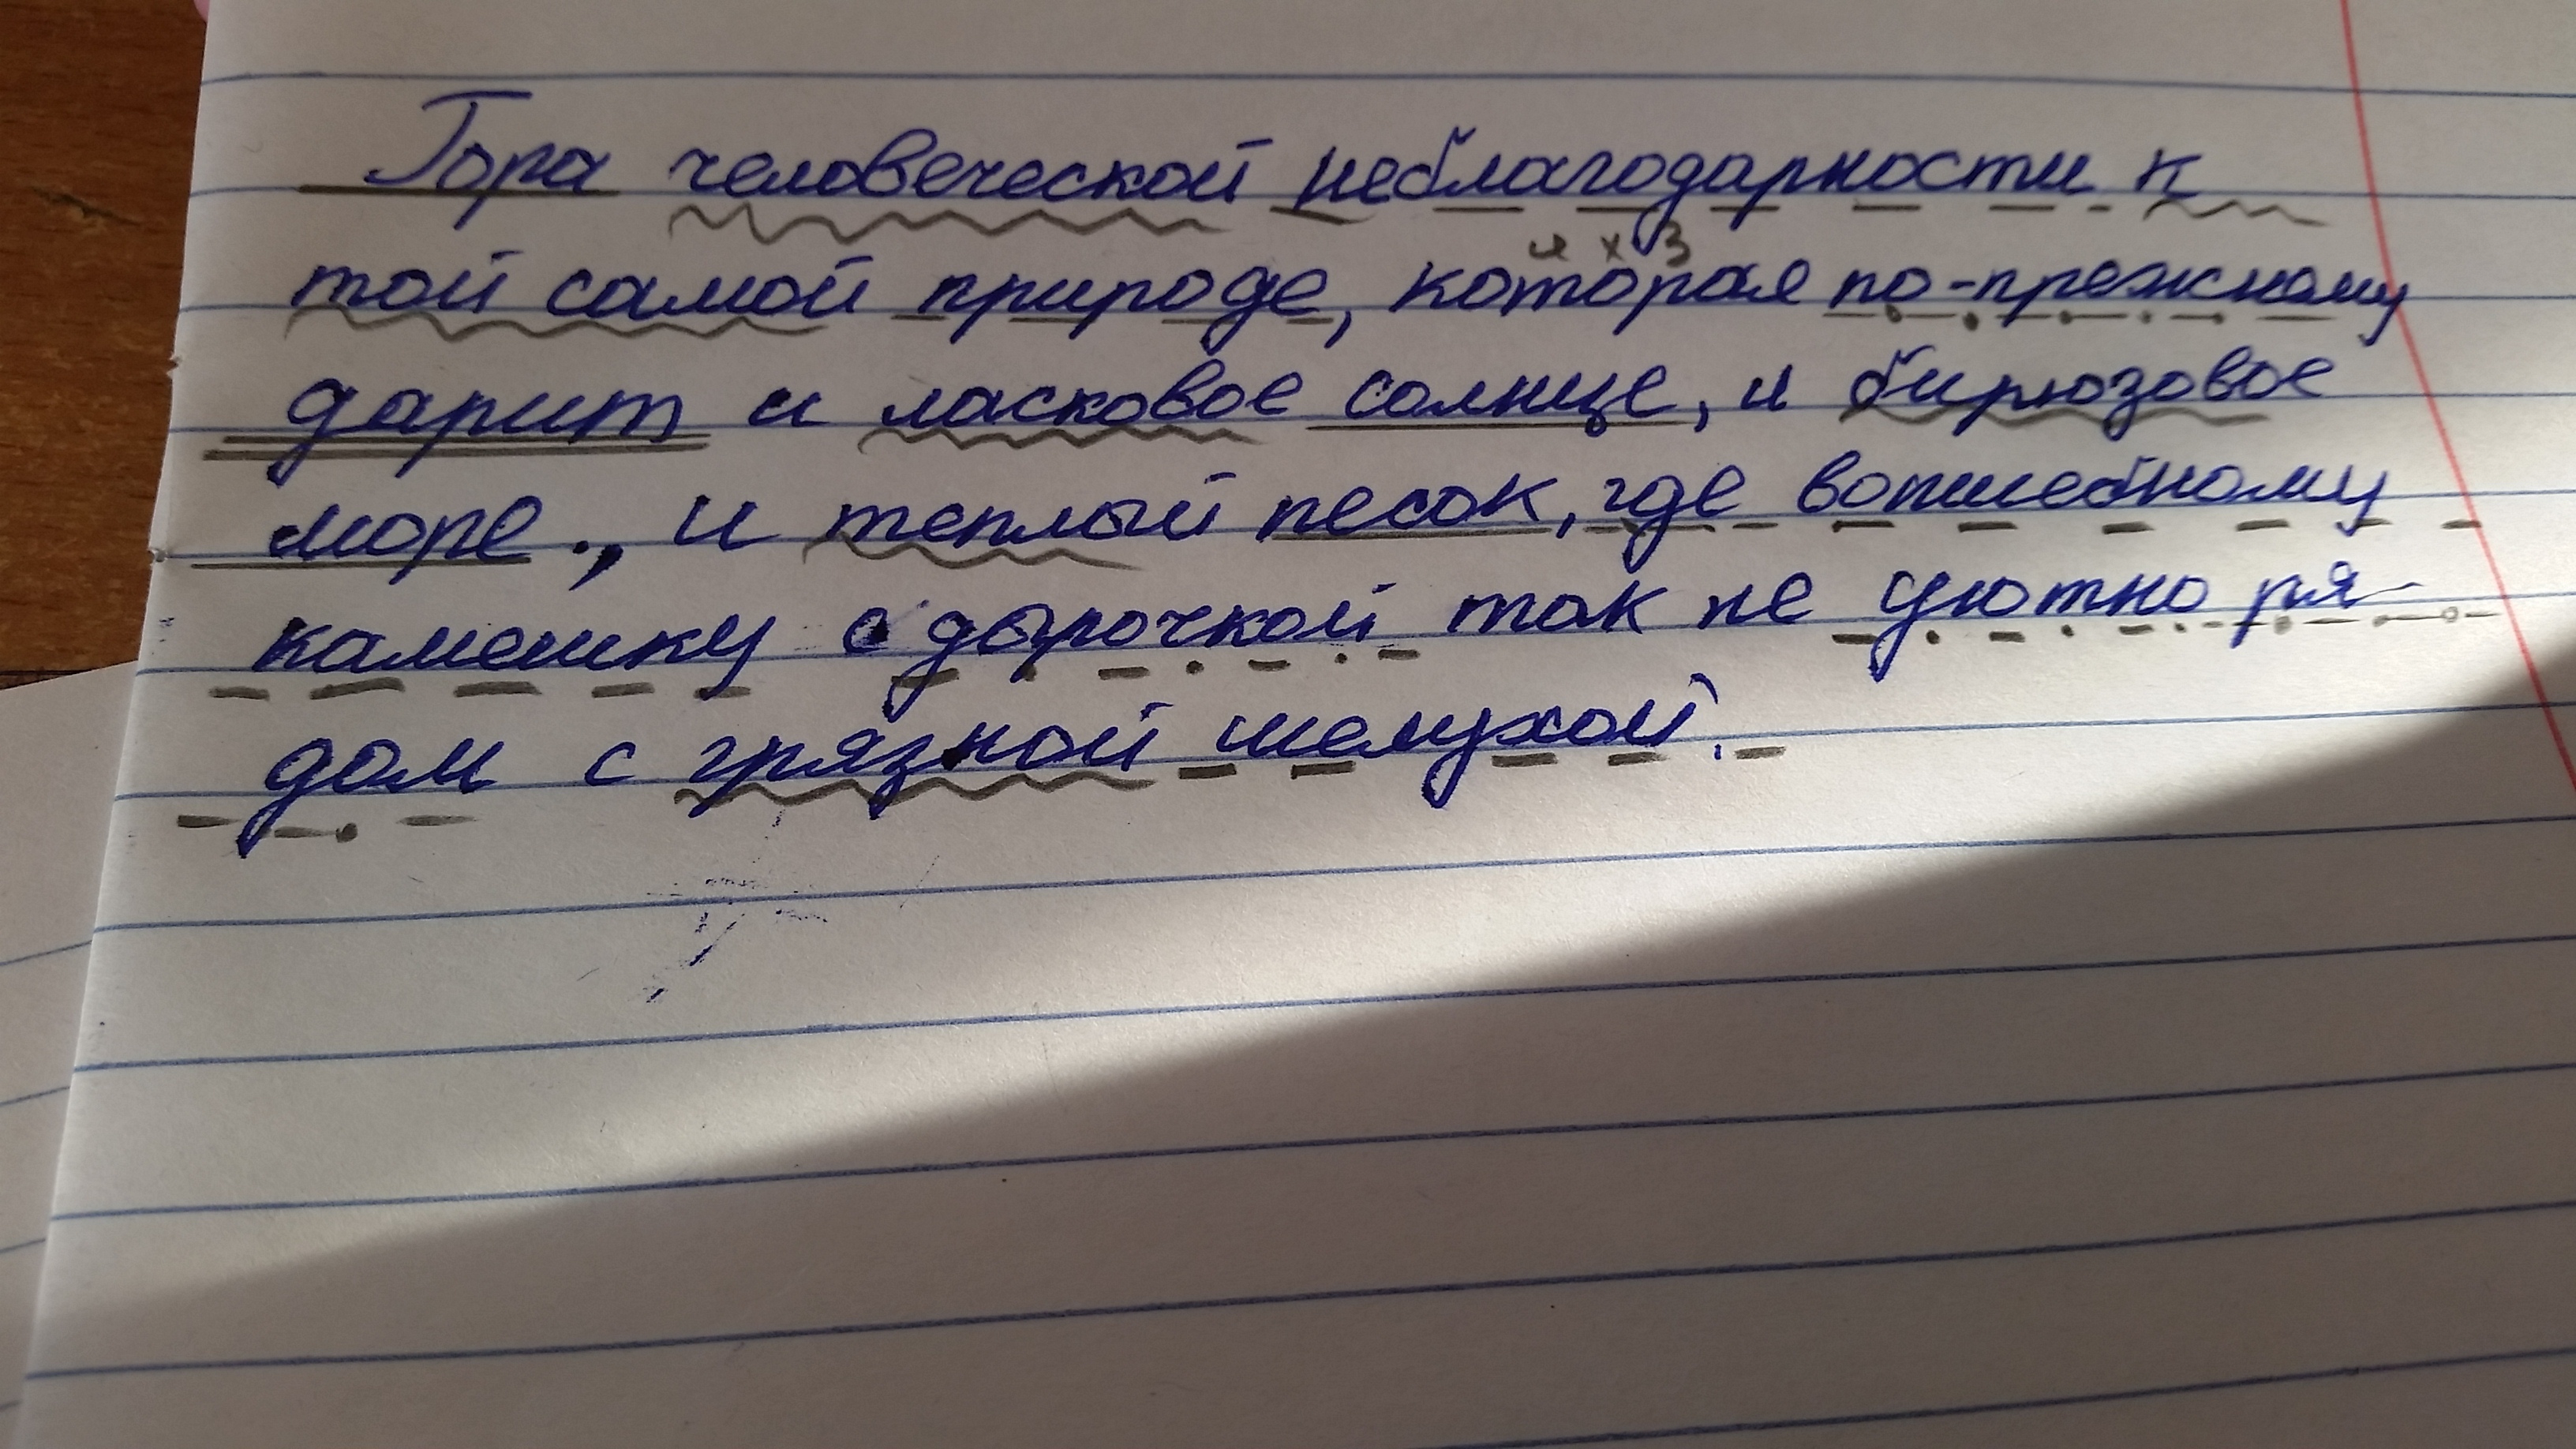 Гора человеческой неблагодарности к
я х з
той самой природе, которая по-прежнему
дарит и ласковое солнце, и бирюзовое
море., и теплый песок, где волшебному
камешку с дырочкой так не уютно ря-
дом с грязной шелухой.